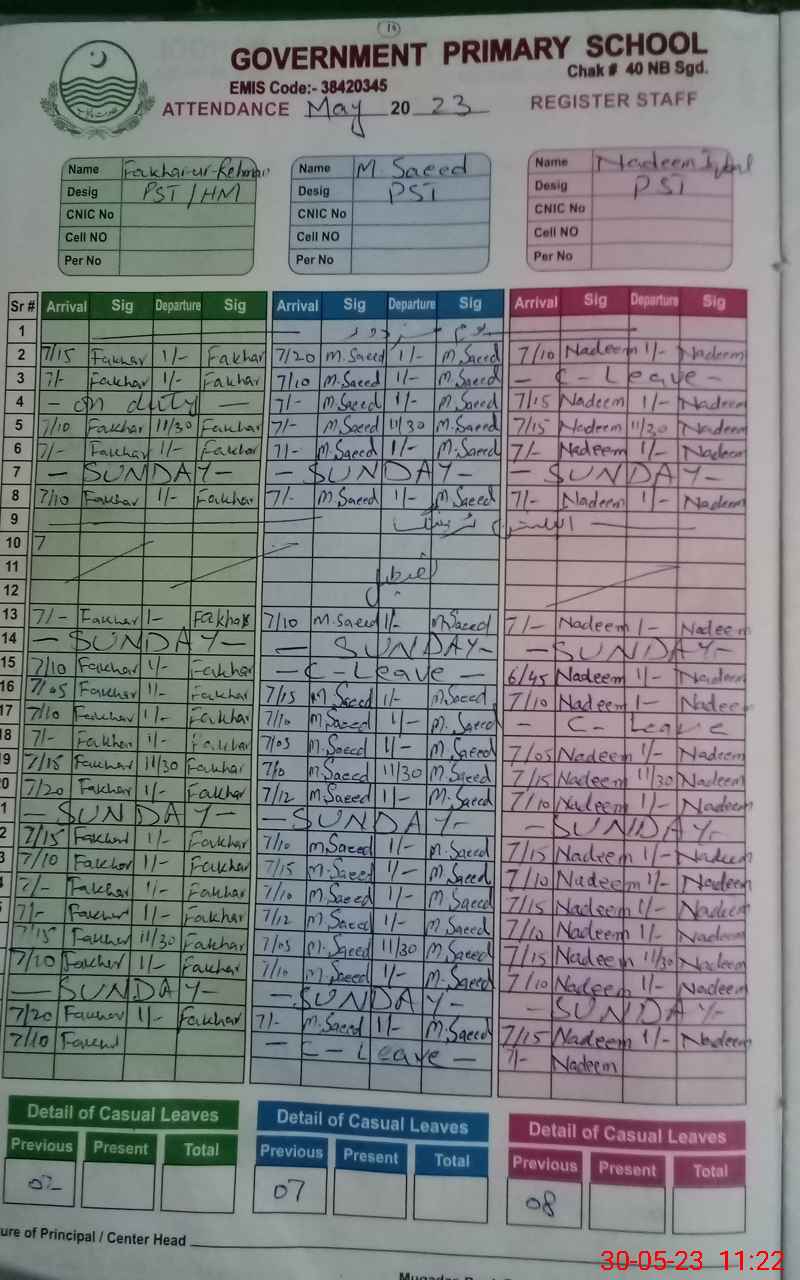 19
GOVERNMENT PRIMARY SCHOOL
Chak # 40 NB Sgd.
EMIS Code:- 38420345
ATTENDANCE May 20 23 REGISTER STAFF
Name Fakhar-ur-Rehman Name M. Saeed Name Nadeem Iqbal
Desig PST/HM Desig PST Desig PST
CNIC No CNIC No CNIC No
Cell NO Cell NO Cell NO
Per No Per No Per No
Sr # Arrival Sig Departure Sig Arrival Sig Departure Sig Arrival Sig Departure Sig
1 یوم مزدور
2 7/15 Fakhar 1/- Fakhar 7/20 M.Saeed 1/- M.Saeed 7/10 Nadeem 1/- Nadeem
3 7/- Fakhar 1/- Fakhar 7/10 M.Saeed 1/- M.Saeed - C-Leave -
4 - on duty - 7/- M.Saeed 1/- M.Saeed 7/15 Nadeem 1/- Nadeem
5 7/10 Fakhar 11/30 Fakhar 7/- M.Saeed 11/30 M.Saeed 7/15 Nadeem 11/30 Nadeem
6 7/- Fakhar 1/- Fakhar 7/- M.Saeed 1/- M.Saeed 7/- Nadeem 1/- Nadeem
7 - SUNDAY - - SUNDAY - - SUNDAY -
8 7/10 Fakhar 1/- Fakhar 7/- M.Saeed 1/- M.Saeed 7/- Nadeem 1/- Nadeem
9
10 7
11 تعطیل
12
13 7/- Fakhar 1- Fakhar 7/10 M.Saeed 1/- M.Saeed 7/- Nadeem 1- Nadeem
14 - SUNDAY - - SUNDAY - - SUNDAY -
15 7/10 Fakhar 1/- Fakhar - C-Leave - 6/45 Nadeem 1/- Nadeem
16 7/05 Fakhar 1/- Fakhar 7/15 M.Saeed 1/- M.Saeed 7/10 Nadeem 1- Nadeem
17 7/10 Fakhar 1/- Fakhar 7/10 M.Saeed 1/- M.Saeed - C-Leave
18 7/- Fakhar 1/- Fakhar 7/05 M.Saeed 1/- M.Saeed 7/05 Nadeem 1/- Nadeem
19 7/15 Fakhar 11/30 Fakhar M.Saeed 11/30 M.Saeed 7/15 Nadeem 11/30 Nadeem
20 7/20 Fakhar 1/- Fakhar 7/12 M.Saeed 1/- M.Saeed 7/10 Nadeem 1/- Nadeem
1 - SUNDAY - - SUNDAY - - SUNDAY -
2 7/15 Fakhar 1/- Fakhar 7/10 M.Saeed 1/- M.Saeed 7/15 Nadeem 1/- Nadeem
3 7/10 Fakhar 1/- Fakhar 7/15 M.Saeed 1/- M.Saeed 7/10 Nadeem 1/- Nadeem
4 7/- Fakhar 1/- Fakhar 7/10 M.Saeed 1/- M.Saeed 7/15 Nadeem 1/- Nadeem
5 7/- Fakhar 1/- Fakhar 7/12 M.Saeed 1/- M.Saeed 7/10 Nadeem 1/- Nadeem
7/15 Fakhar 11/30 Fakhar 7/05 M.Saeed 11/30 M.Saeed 7/15 Nadeem 11/30 Nadeem
7/10 Fakhar 1/- Fakhar 7/10 M.Saeed 1/- M.Saeed 7/10 Nadeem 1/- Nadeem
- SUNDAY - - SUNDAY - - SUNDAY -
7/20 Fakhar 1/- Fakhar 7/- M.Saeed 1/- M.Saeed 7/15 Nadeem 1/- Nadeem
7/10 Fakhar - C-Leave - 7/- Nadeem
Detail of Casual Leaves Detail of Casual Leaves Detail of Casual Leaves
Previous Present Total Previous Present Total Previous Present Total
02 07 08
ure of Principal / Center Head
30-05-23 11:22